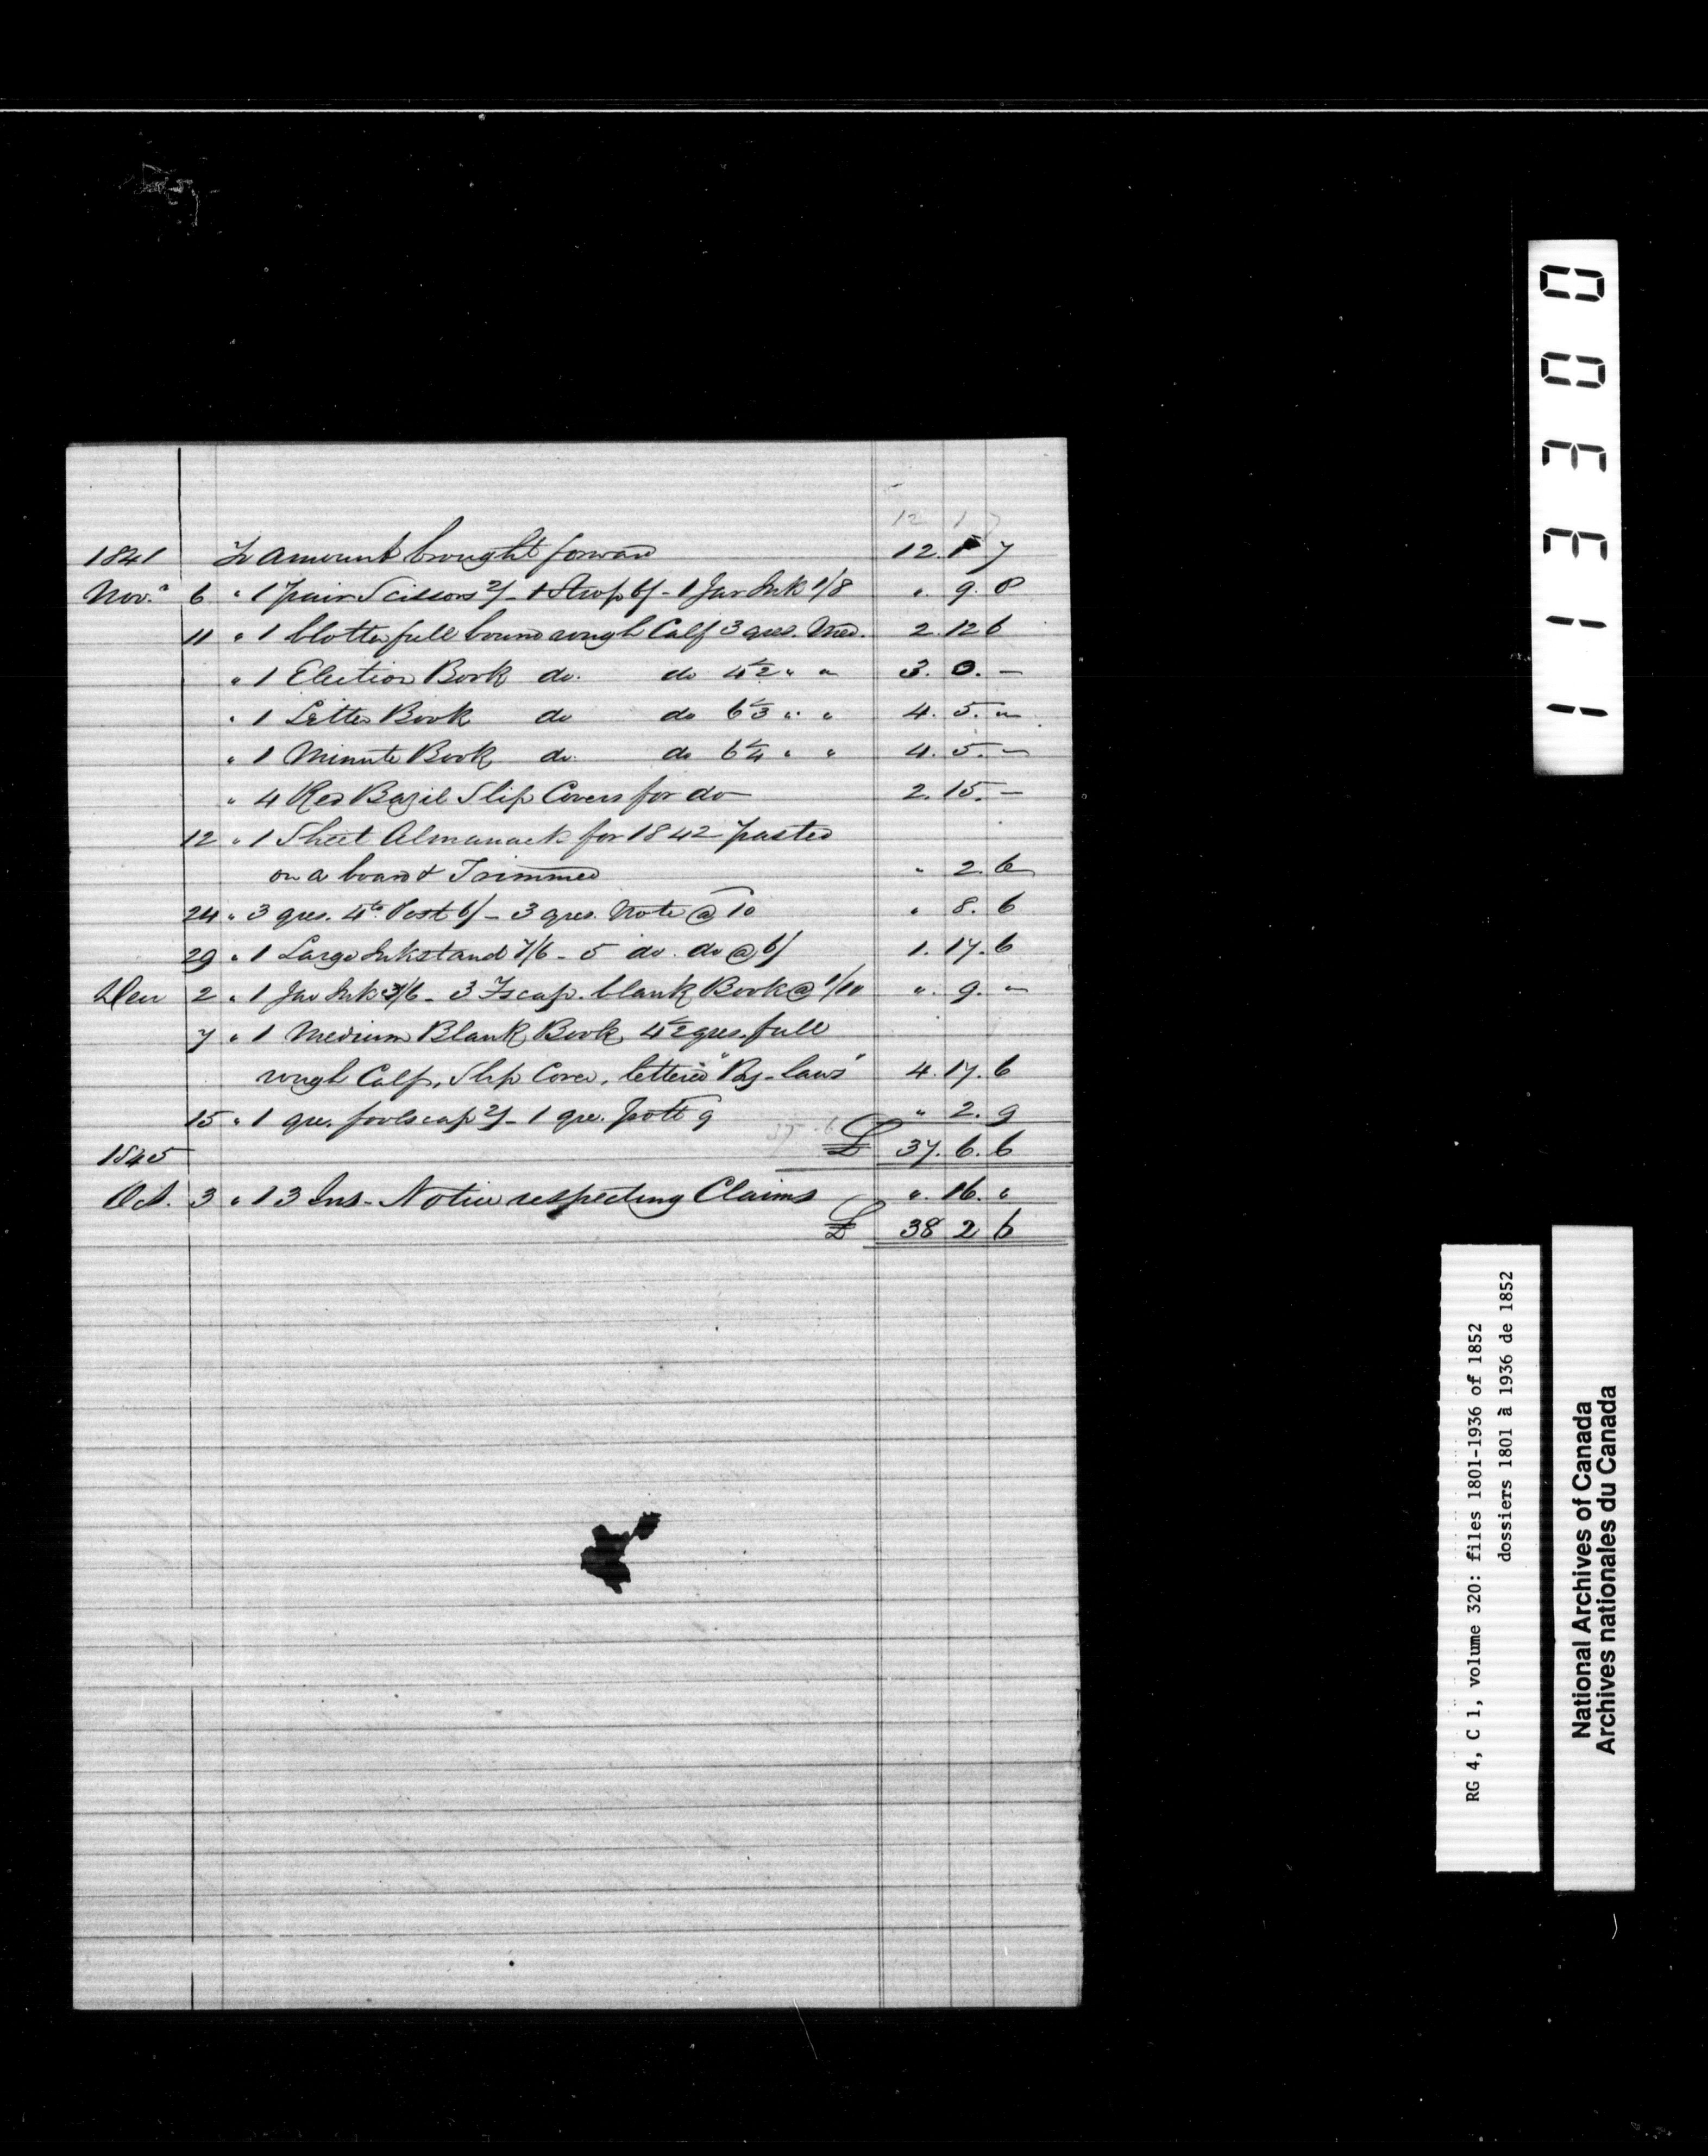 12 1 7
1841 To amount brought forward 12. 1 7
Nov.r 6 " 1 pair Scissors 2/- 1 Strop 6/- 1 Jar Ink 1/8 ". 9. 8
11 " 1 blotter full bound rough Calf 3 qres. Med. 2. 12 6
" 1 Election Book do. do 4 1/2 " " 3. 0. -
" 1 Letter Book do do 6 1/3 " " 4. 5. "
" 1 Minute Book do. do 6 1/4 " " 4. 5. -
" 4 Red Bazil Slip Covers for do 2. 15. -
12 " 1 Sheet Almanack for 1842 pasted
on a board & Trimmed " 2. 6
24 " 3 qres. 4to Post 6/- 3 qres. Note @ 10 " 8. 6
29 " 1 Large Inkstand 7/6 - 5 do. do @ 6/ 1. 17. 6
Decr 2 " 1 Jar Ink 3/6 - 3 Fscap. blank Book @ 1/10 ". 9. "
7 " 1 Medium Blank Book 4 1/2 qres. full
rough Calf, Slip Cover, lettered "By-laws" 4. 17. 6
15 " 1 qre. foolscap 2/- 1 qre. pott 9 " 2. 9
1845 £ 37. 6. 6
Oct. 3 " 13 Ins- Notice respecting Claims ". 16. "
£ 38 2 6
113300
RG 4, C 1, volume 320: files 1801-1936 of 1852
dossiers 1801 à 1936 de 1852
National Archives of Canada
Archives nationales du Canada